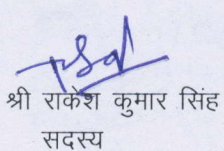 श्री राकेश कुमार सिंह
सदस्य